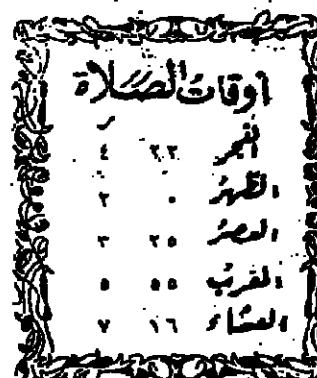 أوقات الصلاة
الفجر ٢٢ ٤
الظهر ٠ ٢
العصر ٢٥ ٣
المغرب ٥٥ ٥
العشاء ١٦ ٧